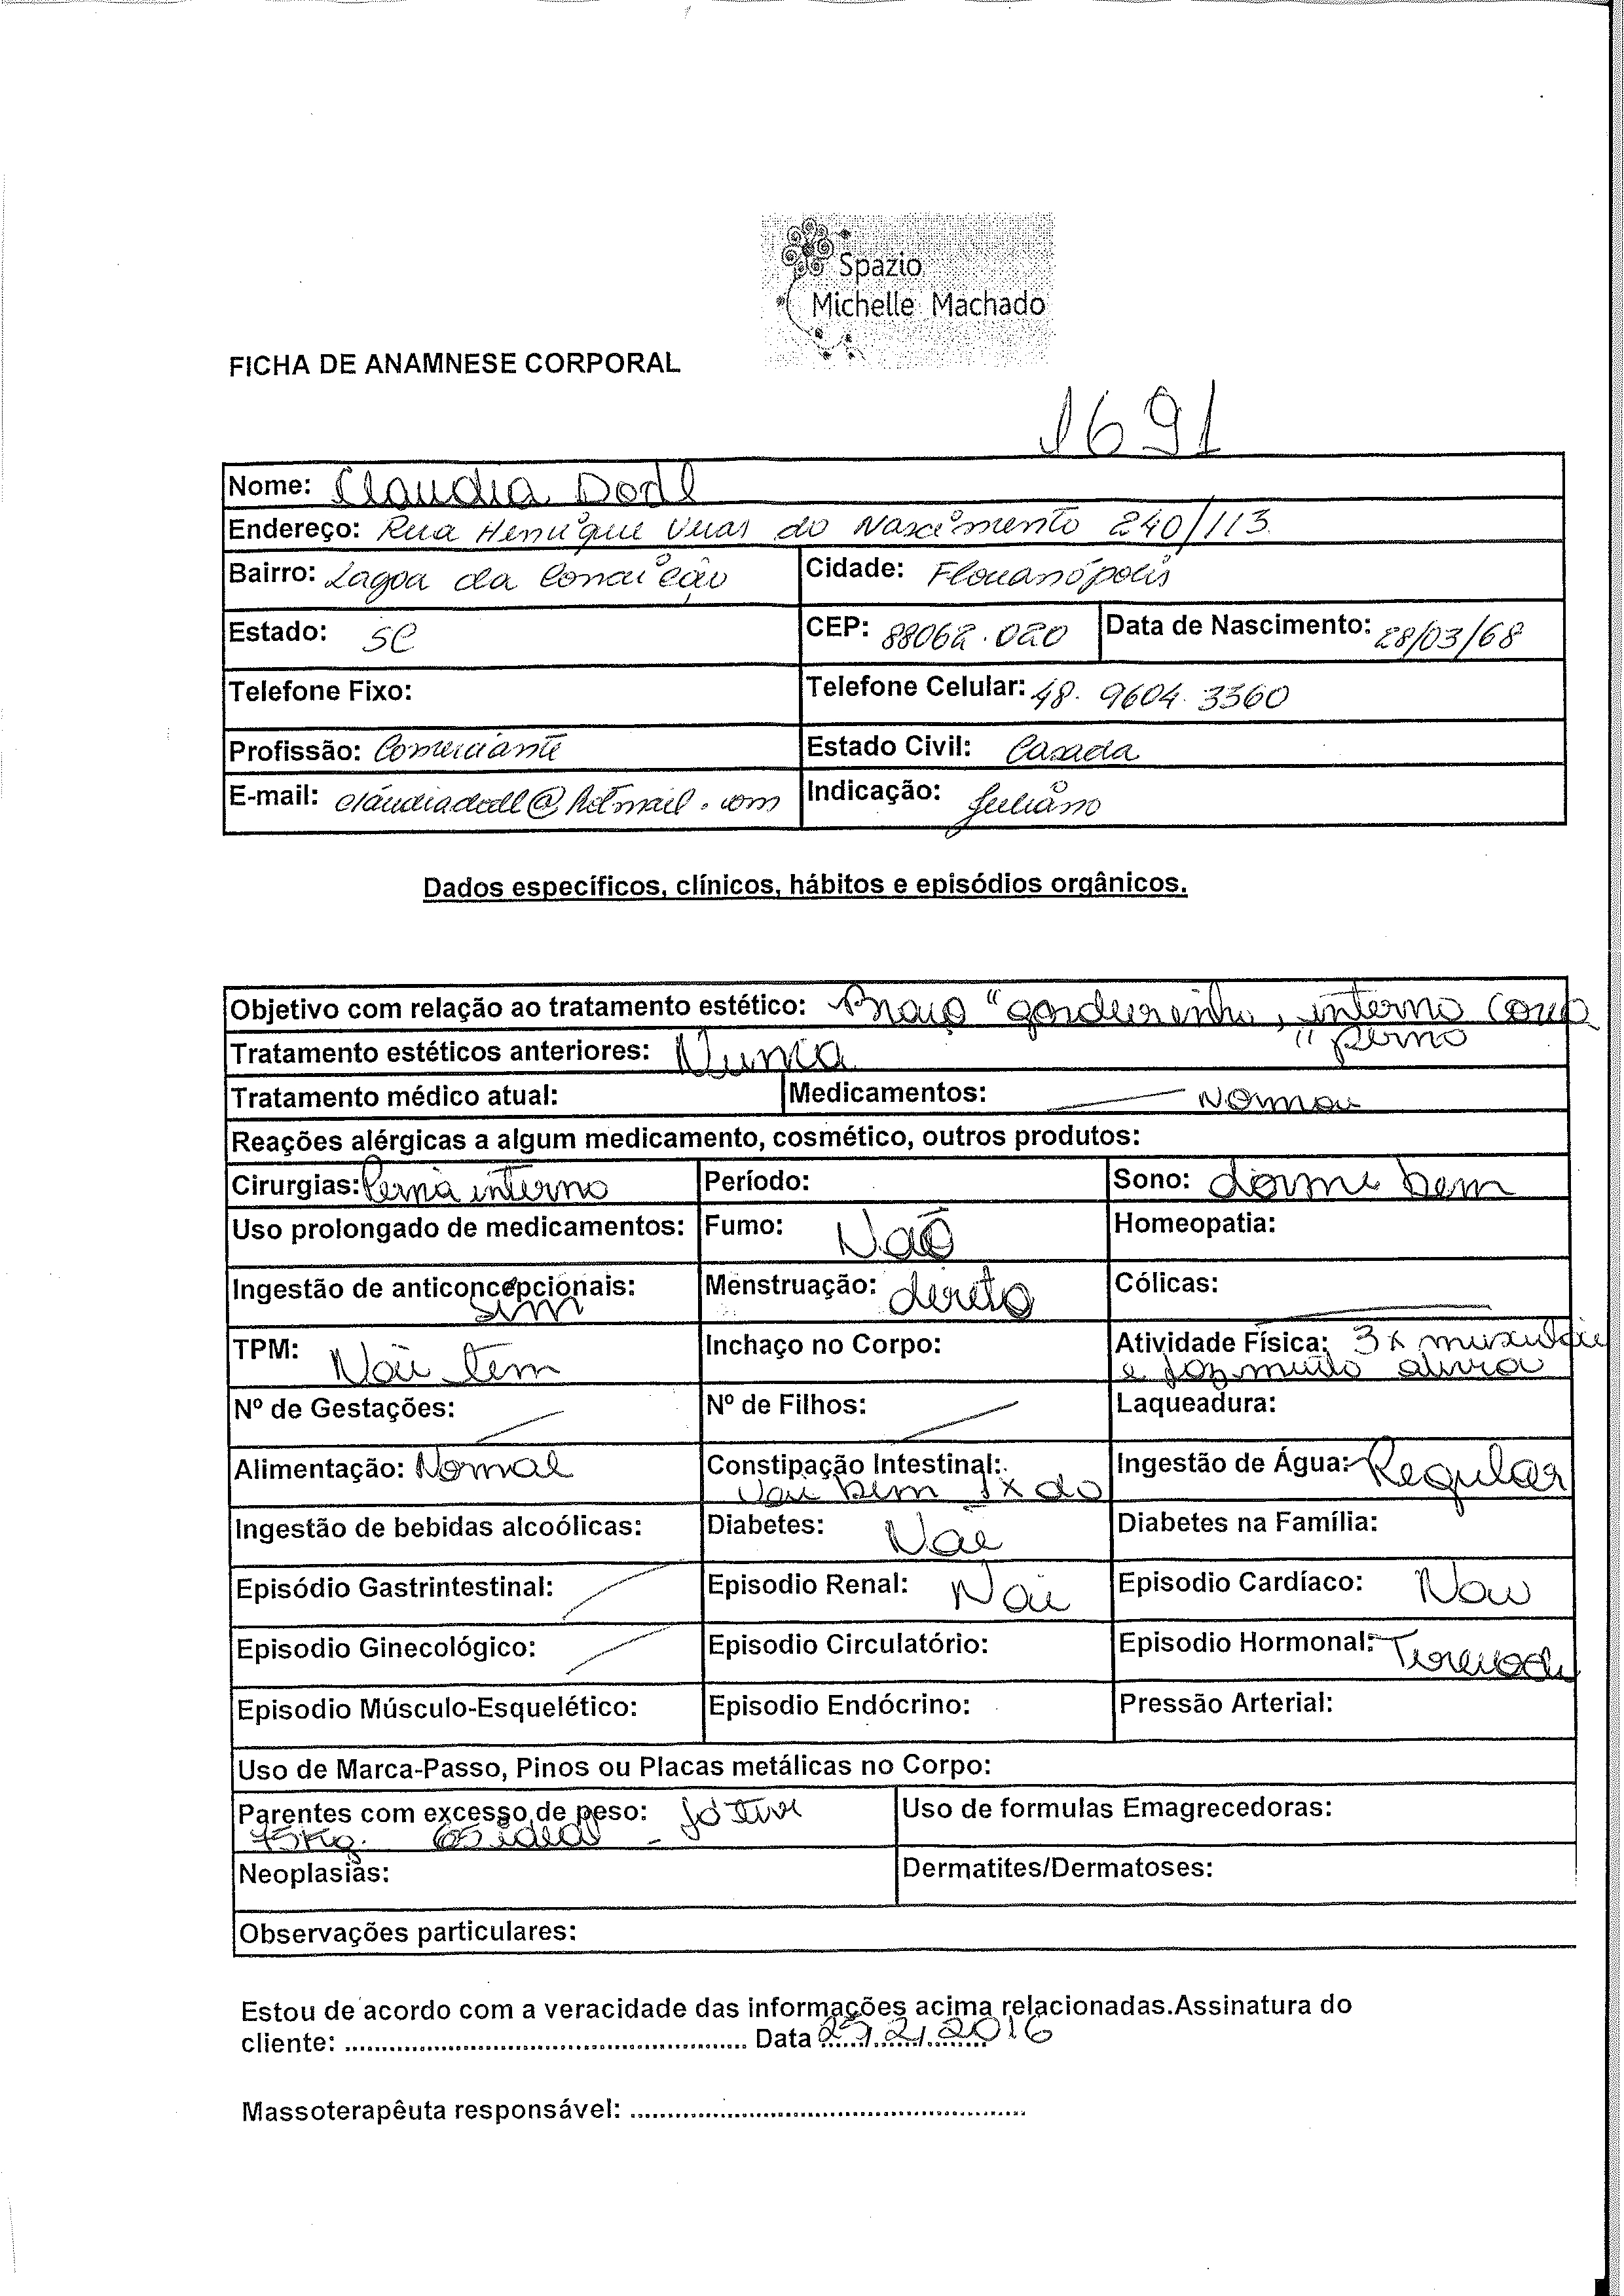 Spazio
Michelle Machado
FICHA DE ANAMNESE CORPORAL
1691
Nome: Claudia Dodl
Endereço: Rua Henrique Veras do Nascimento 240/113
Bairro: Lagoa da Conceição Cidade: Florianópolis
Estado: SC CEP: 88062.020 Data de Nascimento: 28/03/68
Telefone Fixo: Telefone Celular: 48. 9604.3360
Profissão: Comerciante Estado Civil: Casada
E-mail: claudiadodl@hotmail.com Indicação: Juliano
Dados específicos, clínicos, hábitos e episódios orgânicos.
Objetivo com relação ao tratamento estético: "gordurinha, interno
" perna
Tratamento estéticos anteriores: Nunca
Tratamento médico atual: Medicamentos:
Reações alérgicas a algum medicamento, cosmético, outros produtos:
Cirurgias: Perna interno Período: Sono: dorme bem
Uso prolongado de medicamentos: Fumo: Não Homeopatia:
Ingestão de anticoncepcionais: Menstruação: direto Cólicas:
sim
TPM: Não tem Inchaço no Corpo: Atividade Física: 3x
e faz muito
Nº de Gestações: Nº de Filhos: Laqueadura:
Alimentação: Normal Constipação Intestinal: Ingestão de Água: Regular
Vai bem 1x
Ingestão de bebidas alcoólicas: Diabetes: Não Diabetes na Família:
Episódio Gastrintestinal: Episodio Renal: Não Episodio Cardíaco: Não
Episodio Ginecológico: Episodio Circulatório: Episodio Hormonal:
Episodio Músculo-Esquelético: Episodio Endócrino: Pressão Arterial:
Uso de Marca-Passo, Pinos ou Placas metálicas no Corpo:
Parentes com excesso de peso: já tive Uso de formulas Emagrecedoras:
75kg. 65 ideal -
Neoplasias: Dermatites/Dermatoses:
Observações particulares:
Estou de acordo com a veracidade das informações acima relacionadas.Assinatura do
cliente: ........................................................ Data 29/2/2016
Massoterapêuta responsável: ........................................................